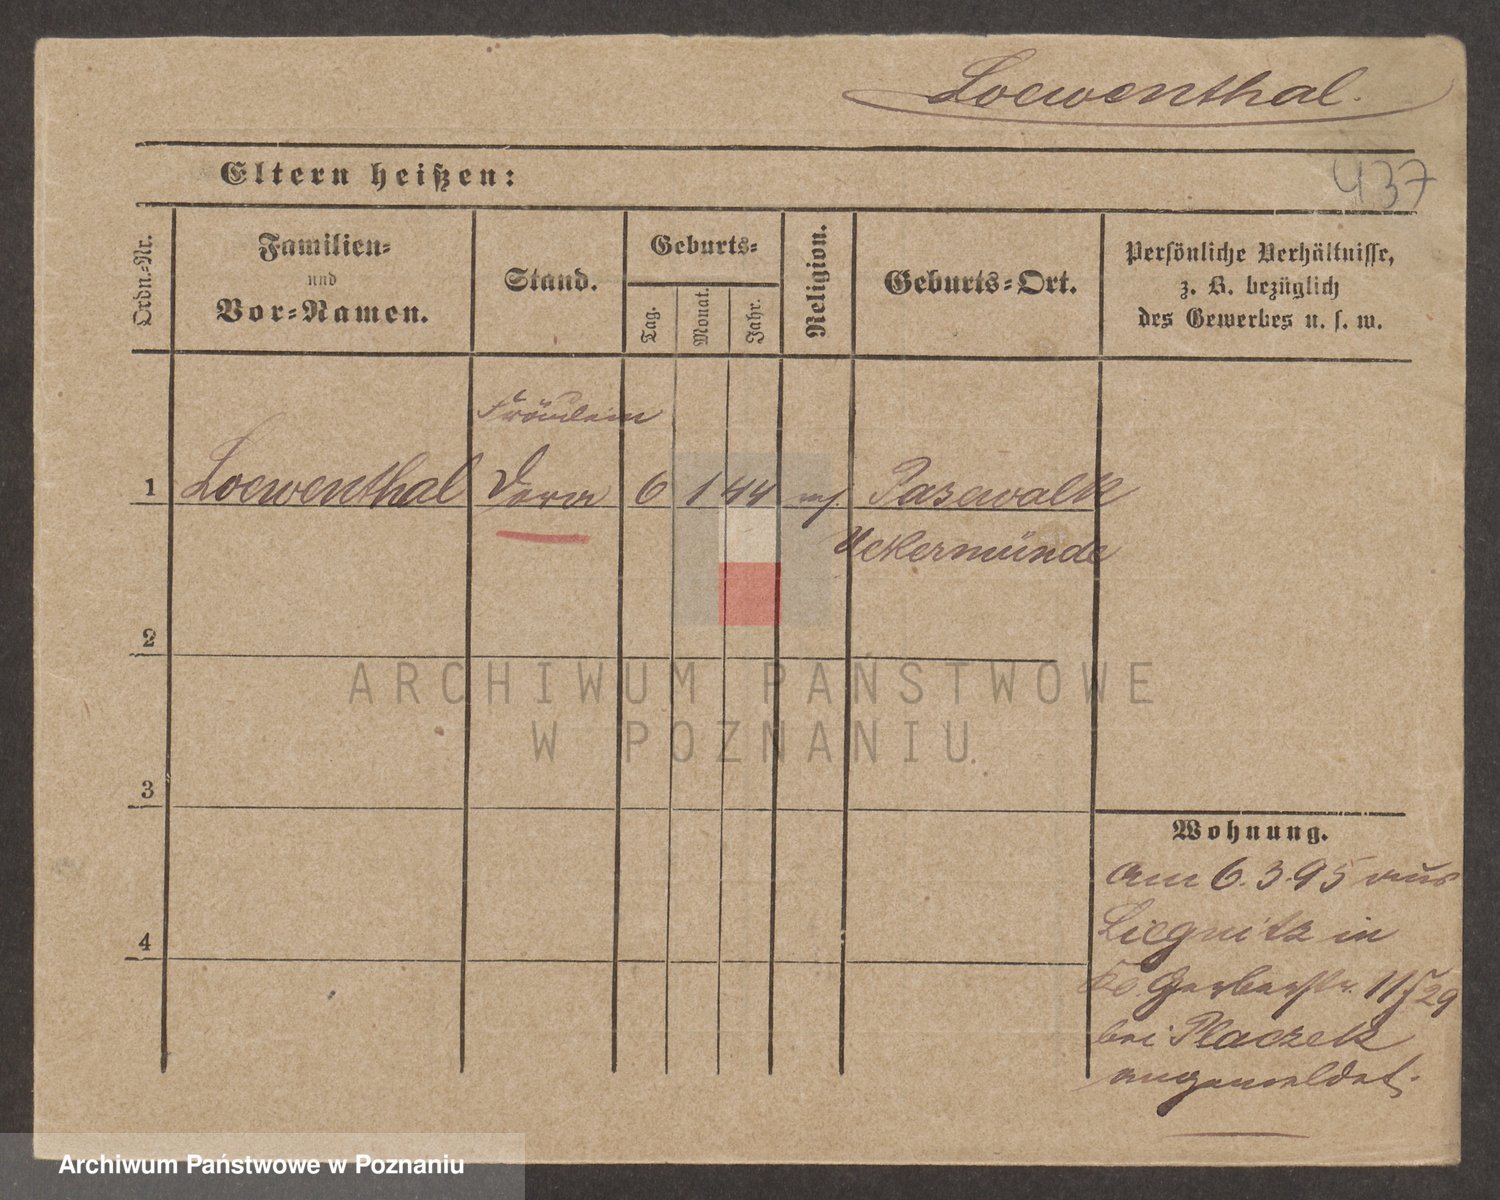 Loewenthal.
437
Eltern heißen:
Ordn.=Nr.
Familien=
und
Vor=Namen.
Stand.
Geburts=
Tag.
Monat.
Jahr.
Religion.
Geburts=Ort.
Persönliche Verhältnisse,
z. B. bezüglich
des Gewerbes u. s. w.
Fräulein
1 Loewenthal 6 1 44 Pasewalk
Ueckermünde
2
3
4
Wohnung.
am 6.3.95 aus
Liegnitz in
Gerberstr. 11
bei Placzek
angemeldet.
ARCHIWUM PAŃSTWOWE
W POZNANIU
Archiwum Państwowe w Poznaniu